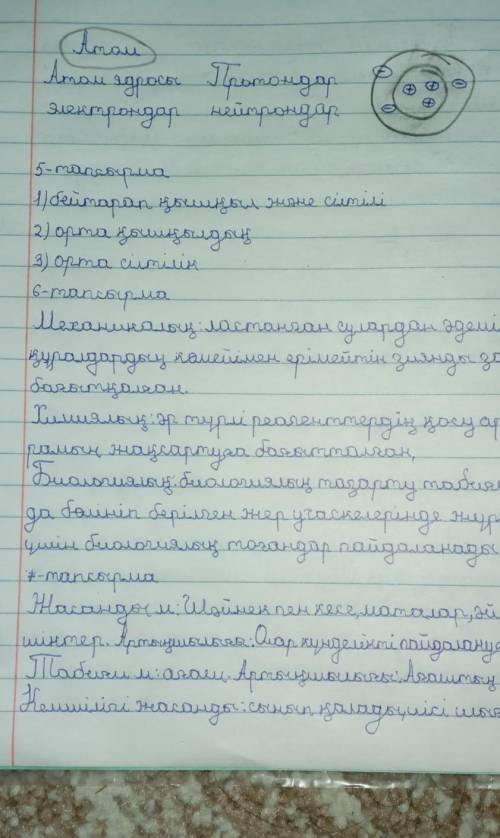 Атом
Атом ядросы Протондар
электрондар нейтрондар
5-тапсырма
1) бейтарап қышқыл және сілтілі
2) орта қышқылдық
3) орта сілтілік
6-тапсырма
Механикалық: ластанған сулардан әдемі
құралдардың көмейімен ерімейтін зиянды за
бағытқалған.
Химиялық: әр түрлі реагенттердің қосу ар
рамын жақсартуға бағытталған,
Биологиялық: биологиялық тазарту табиғи
да бөлініп берілген жер учаскелерінде жүр
үшін биологиялық тоғандар пайдаланады
7-тапсырма
Жасанды м: Шәйнек пен кесе, маталар, әй
шінтер. Артықшылығы: Олар күнделікті пайдалануд
Табиғи м: ағаш, Артықшылығы: Ағаштың
Кемшілігі жасанды: сынып қалады, иісі шығ